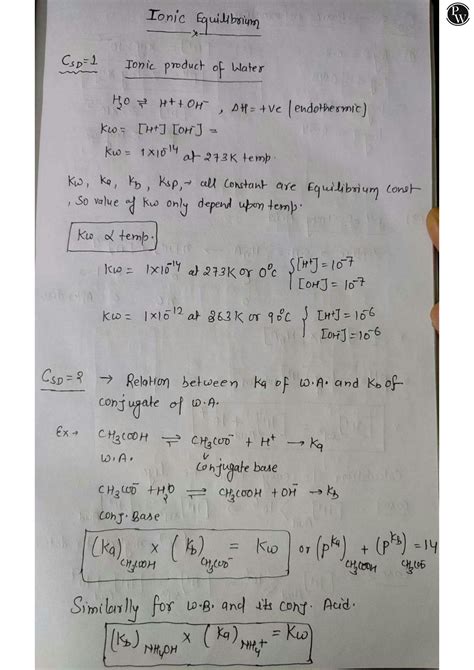 PW
Ionic Equilibrium
CSD=1 Ionic product of Water
H2O ⇌ H+ + OH-, ΔH = +ve (endothermic)
Kw = [H+] [OH-] =
Kw = 1×10^-14 at 273K temp.
Kw, Ka, Kb, Ksp, → all constant are Equilibrium const
, So value of Kw only depend upon temp.
Kw α temp.
Kw = 1×10^-14 at 273K or 0°C { [H+] = 10^-7
[OH-] = 10^-7
Kw = 1×10^-12 at 363K or 90°C { [H+] = 10^-6
[OH-] = 10^-6
CSD=2 → Relation between Ka of W.A. and Kb of
conjugate of W.A.
Ex → CH3COOH ⇌ CH3COO- + H+ → Ka
W.A. Conjugate base
CH3COO- + H2O ⇌ CH3COOH + OH- → Kb
Conj. Base
(Ka)CH3COOH × (Kb)CH3COO- = Kw or (pKa)CH3COOH + (pKb)CH3COO- = 14
Similarlly for W.B. and its conj. Acid.
(Kb)NH4OH × (Ka)NH4+ = Kw